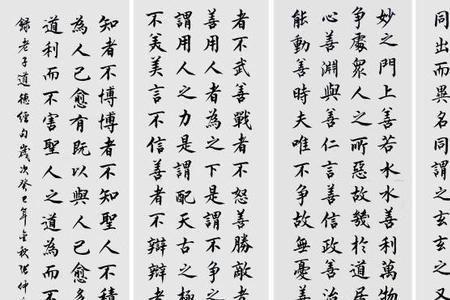 同出而異名同謂之玄玄之又
妙之門上善若水水善利萬物
爭處眾人之所惡故幾於道居
心善淵與善仁言善信政善治
能動善時夫唯不爭故無憂善
者不武善戰者不怒善勝敵者
善用人者為之下是謂不爭之
謂用人之力是謂配天古之極
不美美言不信善者不辯辯者
知者不博博者不知聖人不積
為人己愈有既以與人己愈多
道利而不害聖人之道為而不
錄老子道德經句歲次癸巳年金秋張仲